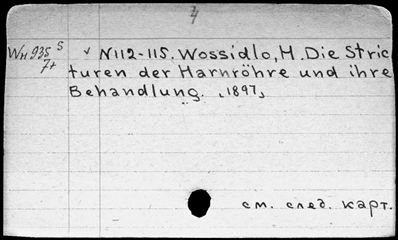 7
Wн 935 S √ N112-115. Wossidlo, H. Die Stric
7+ turen der Harnröhre und ihre
Behandlung. „1897„
см. след. карт.